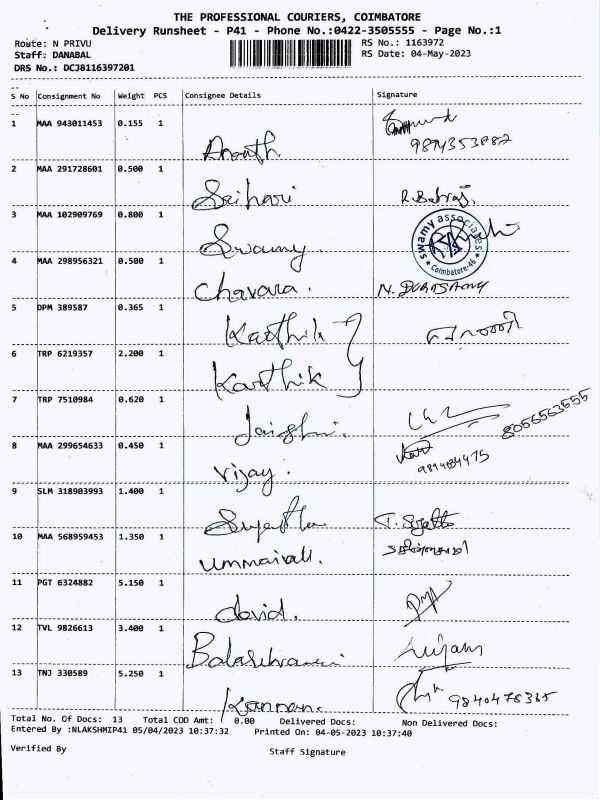 THE PROFESSIONAL COURIERS, COIMBATORE
Delivery Runsheet - P41 - Phone No.:0422-3505555 - Page No.:1
Route: N PRIVU
Staff: DANABAL
DRS No.: DCJB116397201
RS No.: 1163972
RS Date: 04-May-2023
S No Consignment No Weight PCS Consignee Details Signature
1 MAA 943011453 0.155 1 Ananth
2 MAA 291728601 0.500 1 Srihari
3 MAA 102909769 0.800 1 Swamy. swamy associates Coimbatore-46
4 MAA 298956321 0.500 1 Chavara. N. DURAISAMY
5 DPM 389587 0.365 1 Karthik
6 TRP 6219357 2.200 1 Karthik
7 TRP 7510984 0.620 1 8056563555
8 MAA 299654633 0.450 1 Vijay.
9 SLM 318903993 1.400 1 Sujatha
10 MAA 568959453 1.350 1
11 PGT 6324882 5.150 1 david.
12 TVL 9826613 3.400 1
13 TNJ 330589 5.250 1 Kannan. 9840478365
Total No. Of Docs: 13 Total COD Amt: 0.00 Delivered Docs: Non Delivered Docs:
Entered By :NLAKSHMIP41 05/04/2023 10:37:32 Printed On: 04-05-2023 10:37:40
Verified By Staff Signature